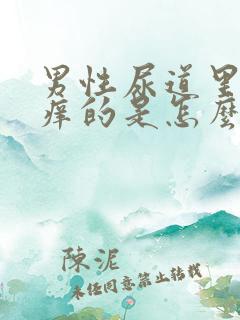 男性尿道里
痒的是怎麽
陳泥
未经同意禁止转载